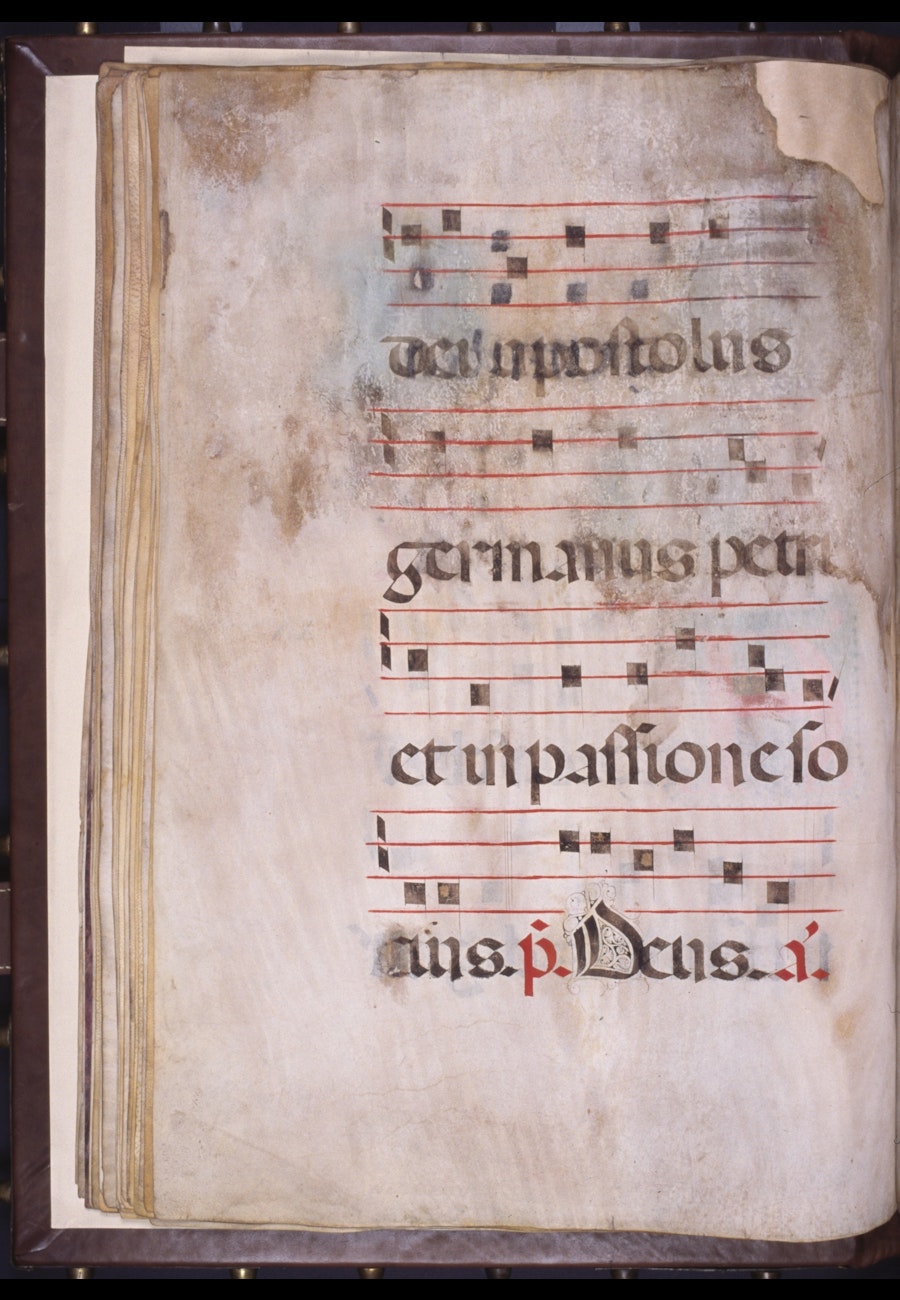 dei apostolus
germanus petri
et in passione so
cius. p̃. Deus. a.̉